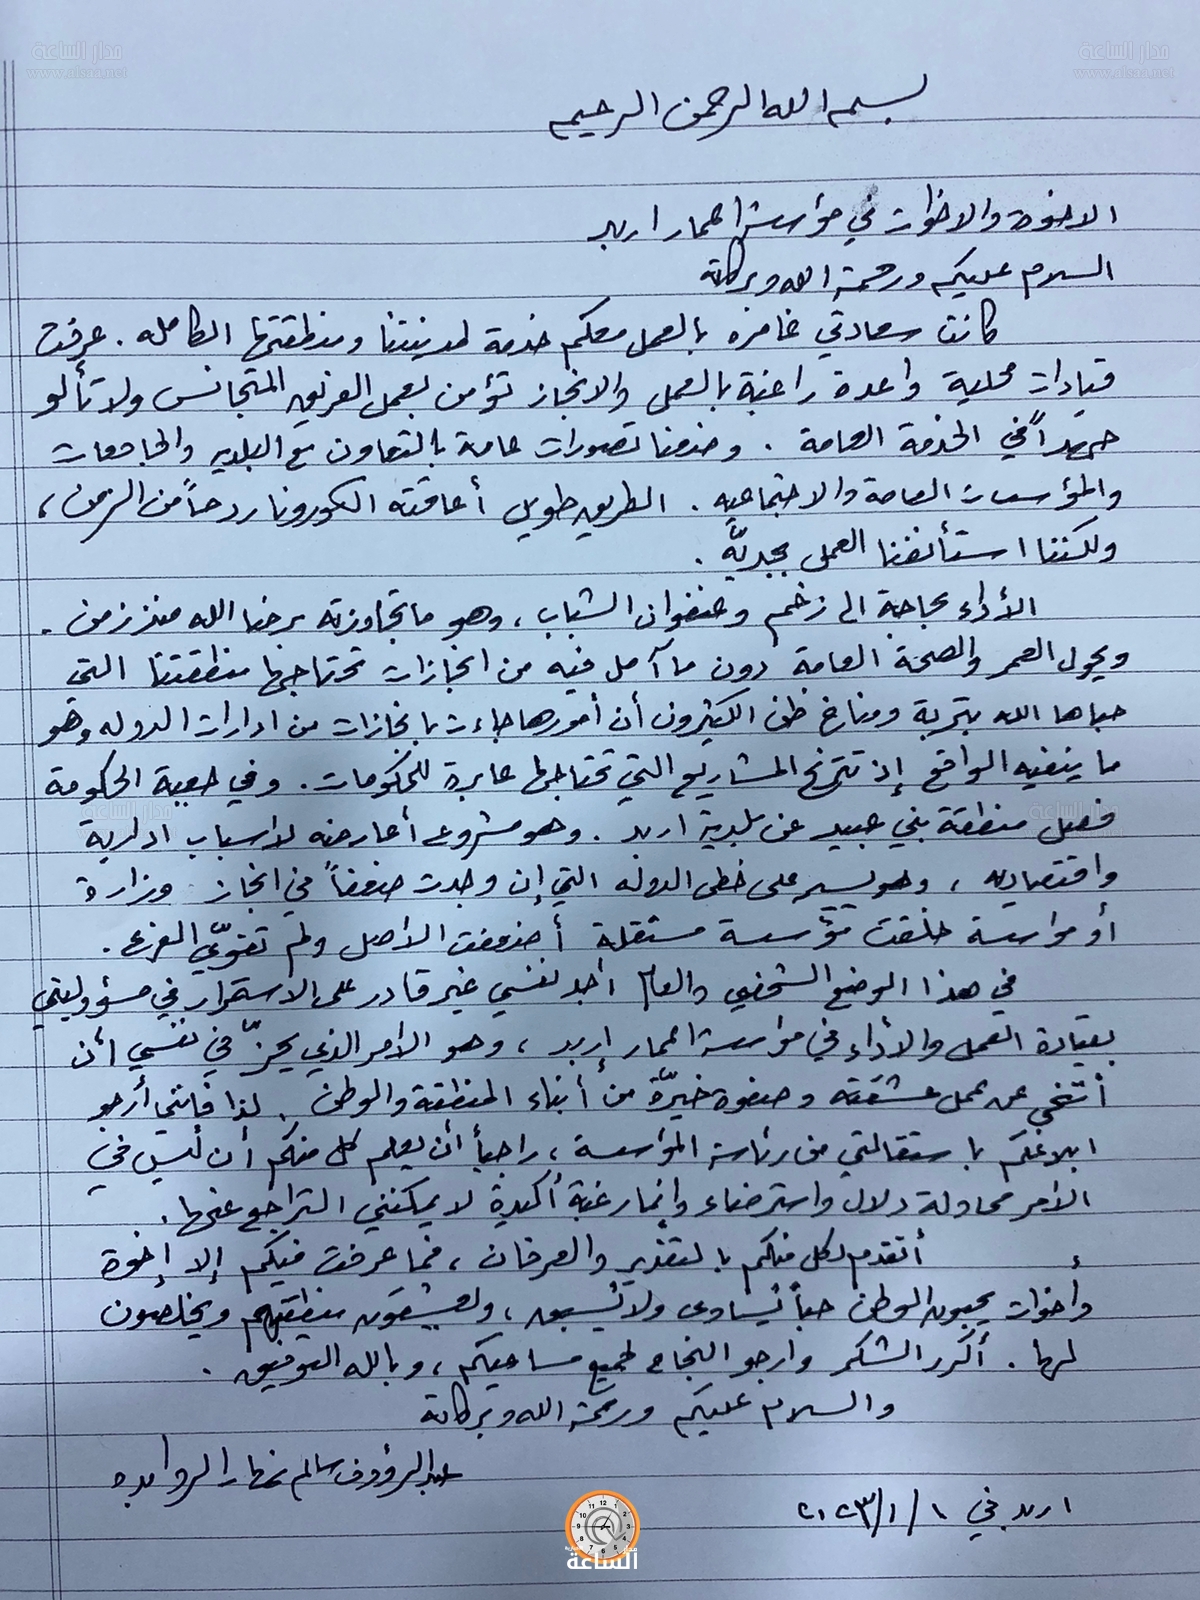 مدار الساعة
www.alsaa.net
مدار الساعة
www.alsaa.net
بسم الله الرحمن الرحيم
الاخوة والاخوات في مؤسسة اعمار اربد
السلام عليكم ورحمة الله وبركاته
كانت سعادتي غامره بالعمل معكم خدمة لمدينتنا ومنطقتها الكامله . عرفت
قيادات محلية واعدة راغبة بالعمل والانجاز تؤمن بعمل الفريق المتجانس ولا تألو
جهداً في الخدمة العامة . وضعنا تصورات عامة بالتعاون مع البلديه والجامعات
والمؤسسات العامة والاجتماعيه . الطريق طويل أعاقته الكورونا ردحاً من الزمن ،
ولكننا استأنفنا العمل بجديّة .
الأداء بحاجة الى زخم وعنفوان الشباب ، وهو ما تجاوزته برضا الله منذ زمن .
ويحول العمر والصحة العامة دون ما آمل فيه من انجازات تحتاجها منطقتنا التي
حباها الله بتربة ومناخ ظن الكثيرون أن أمورها جاءت بانجازات من ادارات الدوله وهو
ما ينفيه الواقع إذ تترنح المشاريع التي تحتاجها عابرة للحكومات . وفي جعبة الحكومة
فصل منطقة بني عبيد عن بلدية اربد . وهو مشروع أعارضه لاسباب ادارية
واقتصاديه ، وهو يسير على خطى الدوله التي إن وجدت ضعفاً في انجاز وزارة
أو مؤسسة خلقت مؤسسة مستقلة أضعفت الاصل ولم تقوّي الفرع .
في هذا الوضع الشخصي والعام اجد نفسي غير قادر على الاستمرار في مسؤوليتي
بقيادة العمل والأداء في مؤسسة اعمار إربد ، وهو الأمر الذي يحزّ في نفسي أن
أتنحى عن عمل عشقته وصفوة خيرّة من أبناء المنطقة والوطن . لذا فإنني أرجو
ابلاغكم باستقالتي من رئاسة المؤسسة ، راجياً أن يعلم كل منكم أن ليس في
الأمر محاولة دلال واسترضاء وانما رغبة أكيدة لا يمكنني التراجع عنها .
أتقدم لكل منكم بالتقدير والعرفان ، فما عرفت فيكم إلا إخوة
وأخوات يحبون الوطن حباً يساوى ولا يُسبق ، ويعشقون منطقتهم ويخلصون
لها . أكرر الشكر وارجو النجاح لجميع مساعيكم ، وبالله التوفيق .
والسلام عليكم ورحمة الله وبركاته
عبدالرؤوف سالم نهار الروابده
اربد في ١/١/٢٠٢٣
الساعة